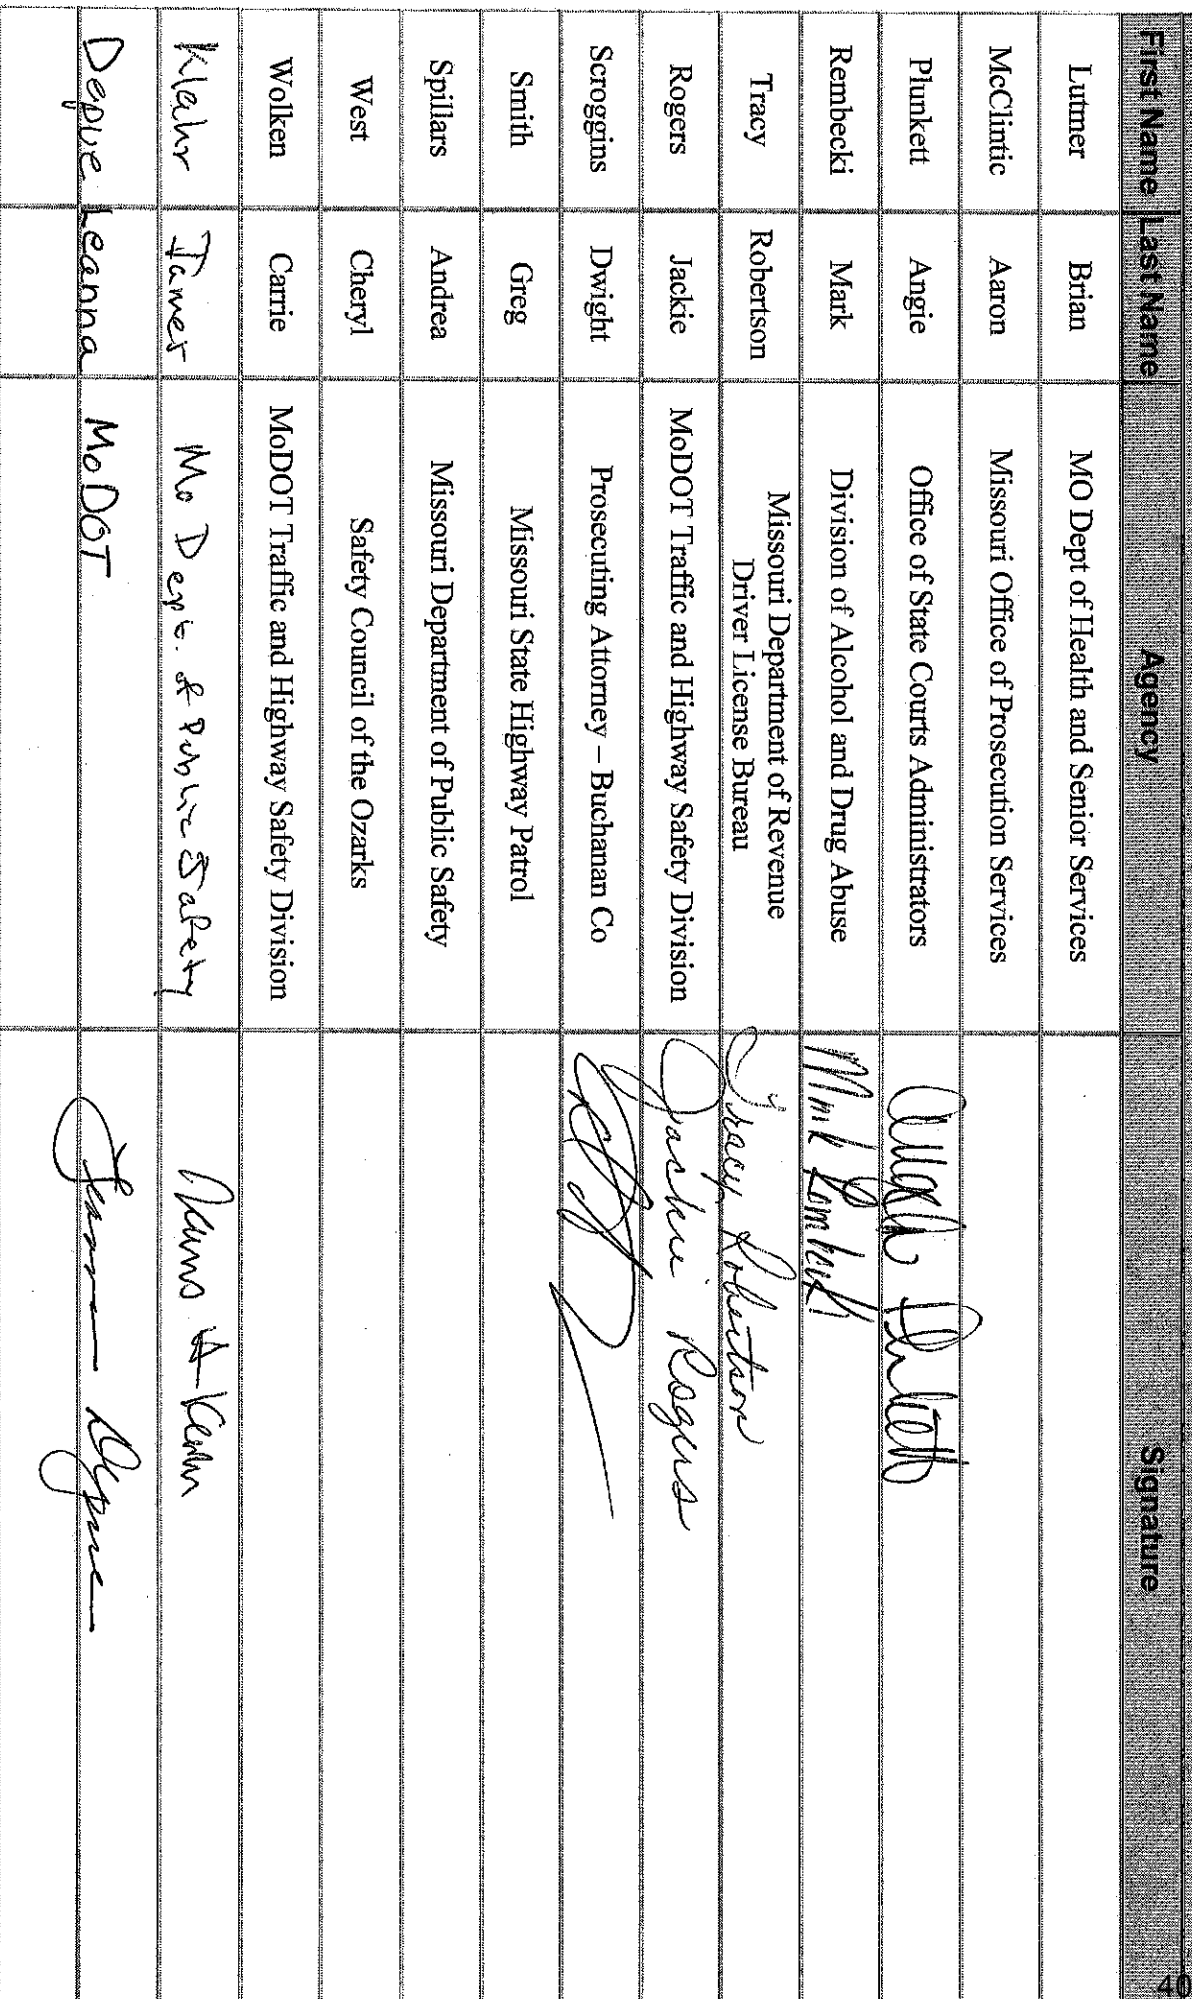 40
First Name Last Name Agency Signature
Lutmer Brian MO Dept of Health and Senior Services
McClintic Aaron Missouri Office of Prosecution Services
Plunkett Angie Office of State Courts Administrators Angela Plunkett
Rembecki Mark Division of Alcohol and Drug Abuse Mark Rembecki
Tracy Robertson Missouri Department of Revenue
Driver License Bureau Tracy Robertson
Rogers Jackie MoDOT Traffic and Highway Safety Division Jackie Rogers
Scroggins Dwight Prosecuting Attorney – Buchanan Co
Smith Greg Missouri State Highway Patrol
Spillars Andrea Missouri Department of Public Safety
West Cheryl Safety Council of the Ozarks
Wolken Carrie MoDOT Traffic and Highway Safety Division
Klahr James Mo Dept. of Public Safety
Depue Leanna MoDOT Leanna Depue